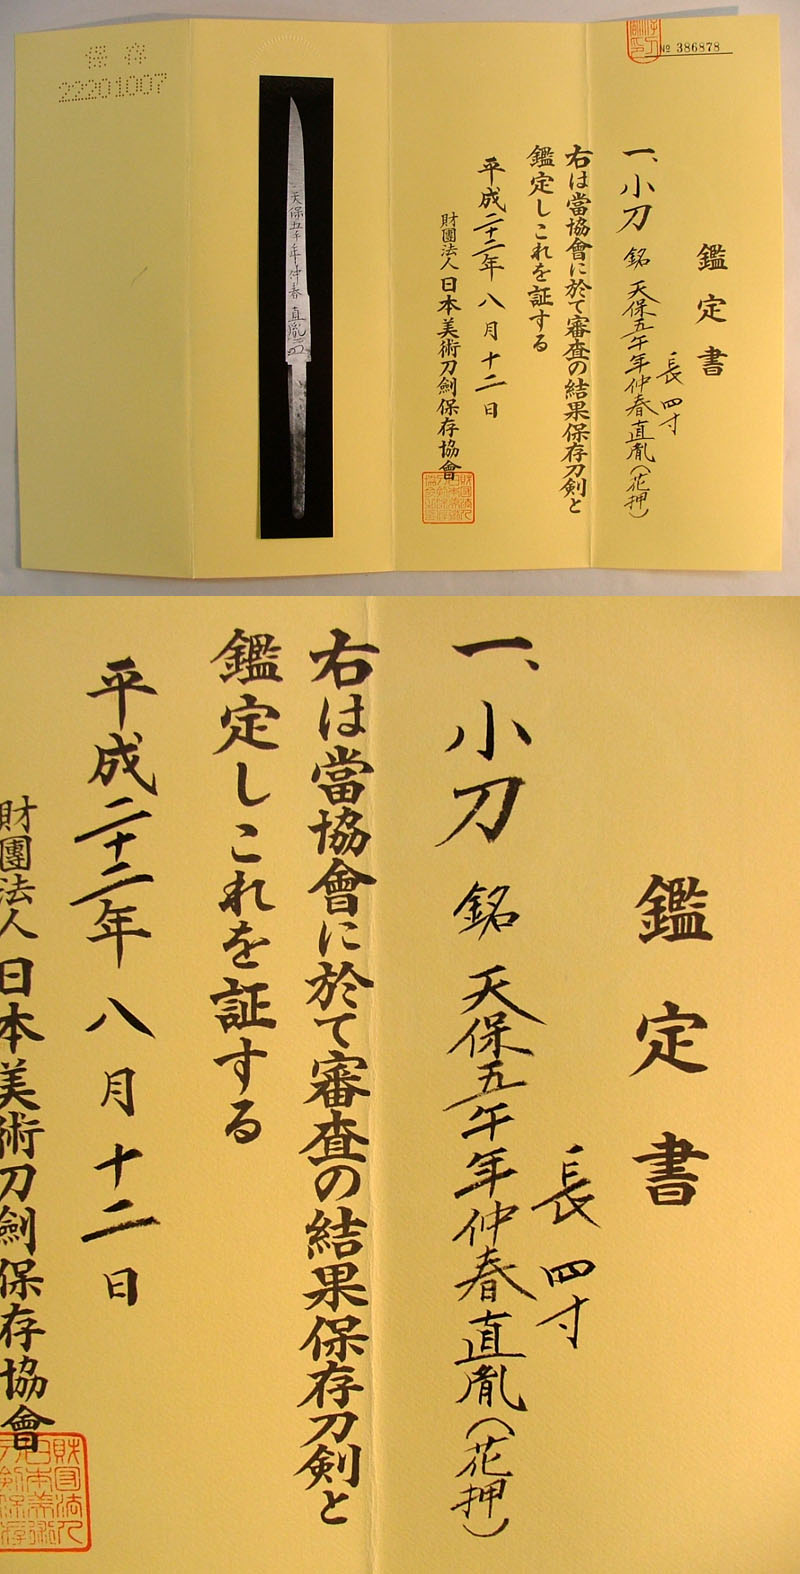 保存
22201007
天保五午年仲春 直胤
№ 386878
鑑定書
一、小刀 銘 天保五午年仲春直胤(花押)
長 四寸
右は當協會に於て審査の結果保存刀剣と
鑑定しこれを証する
平成二十二年八月十二日
財團法人 日本美術刀劍保存協會
鑑定書
長 四寸
一、小刀 銘 天保五午年仲春直胤(花押)
右は當協會に於て審査の結果保存刀剣と
鑑定しこれを証する
平成二十二年八月十二日
財團法人 日本美術刀劍保存協會